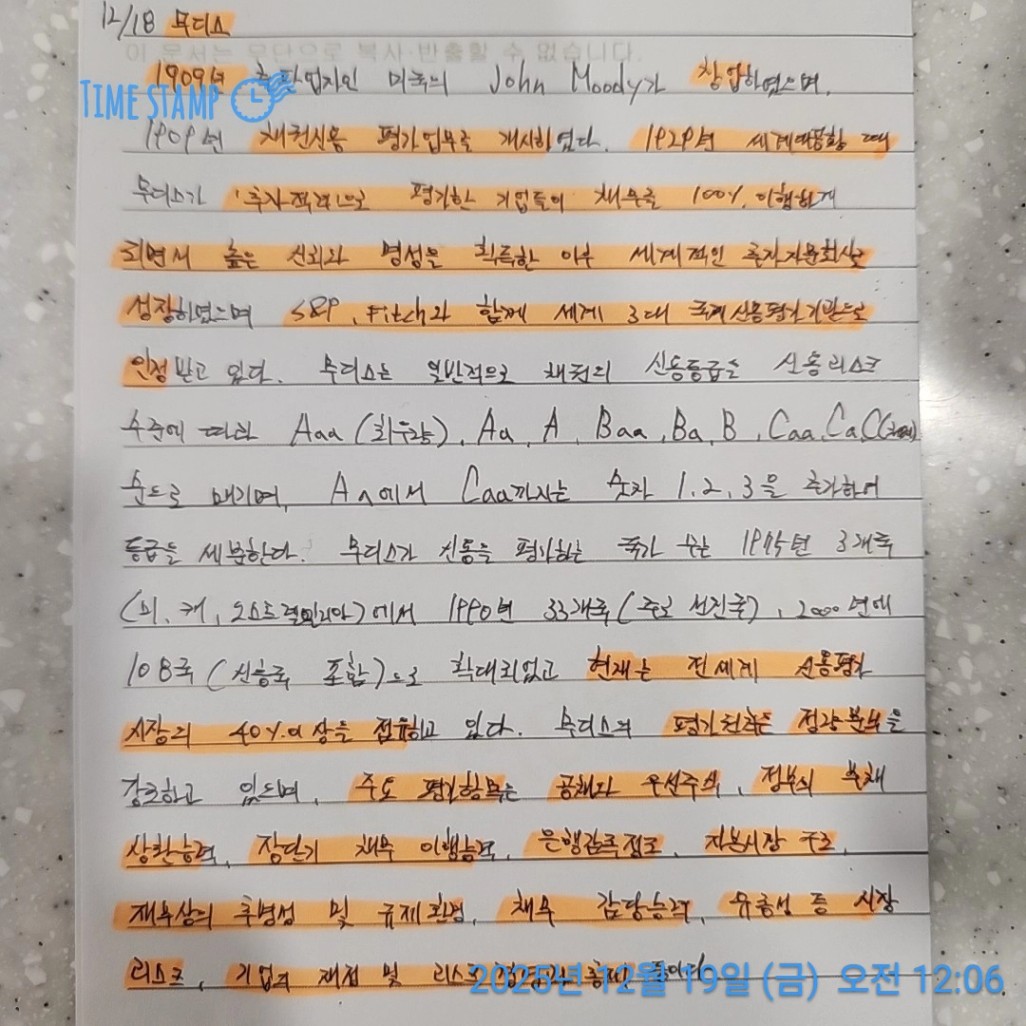 12/18 무디스
이 문서는 무단으로 복사·반출할 수 없습니다.
1909년 출판업자인 미국의 John Moody가 창업하였으며,
TIME STAMP
1909년 채권신용 평가업무를 개시하였다. 1929년 세계대공황 때
무디스가 '투자적격'으로 평가한 기업들이 채무를 100% 이행하게
되면서 높은 신뢰와 명성을 획득한 이후 세계적인 투자자문회사로
성장하였으며 S&P, Fitch와 함께 세계 3대 국제신용평가기관으로
인정받고 있다. 무디스는 일반적으로 채권의 신용등급을 신용리스크
수준에 따라 Aaa (최우량), Aa, A, Baa, Ba, B, Caa, Ca, C
순으로 매기며, Aa에서 Caa까지는 숫자 1, 2, 3을 추가하여
등급을 세분한다. 무디스가 신용을 평가하는 국가 수는 1975년 3개국
(미, 캐, 오스트레일리아)에서 1990년 33개국 (주로 선진국), 2000년에
108국 (신흥국 포함)으로 확대되었고 현재는 전세계 신용평가
시장의 40%이상을 점유하고 있다. 무디스의 평가원칙은 정량분석을
강조하고 있으며, 주요 평가항목은 공채와 우선주의, 정부의 부채
상환능력, 장단기 채무 이행능력, 은행감독정도, 자본시장 구조,
재무상의 투명성 및 규제환경, 채무 감당능력, 유동성 등 시장
리스크, 기업의 재정 및 리스크 통제 등이다
2025년 12월 19일 (금) 오전 12:06